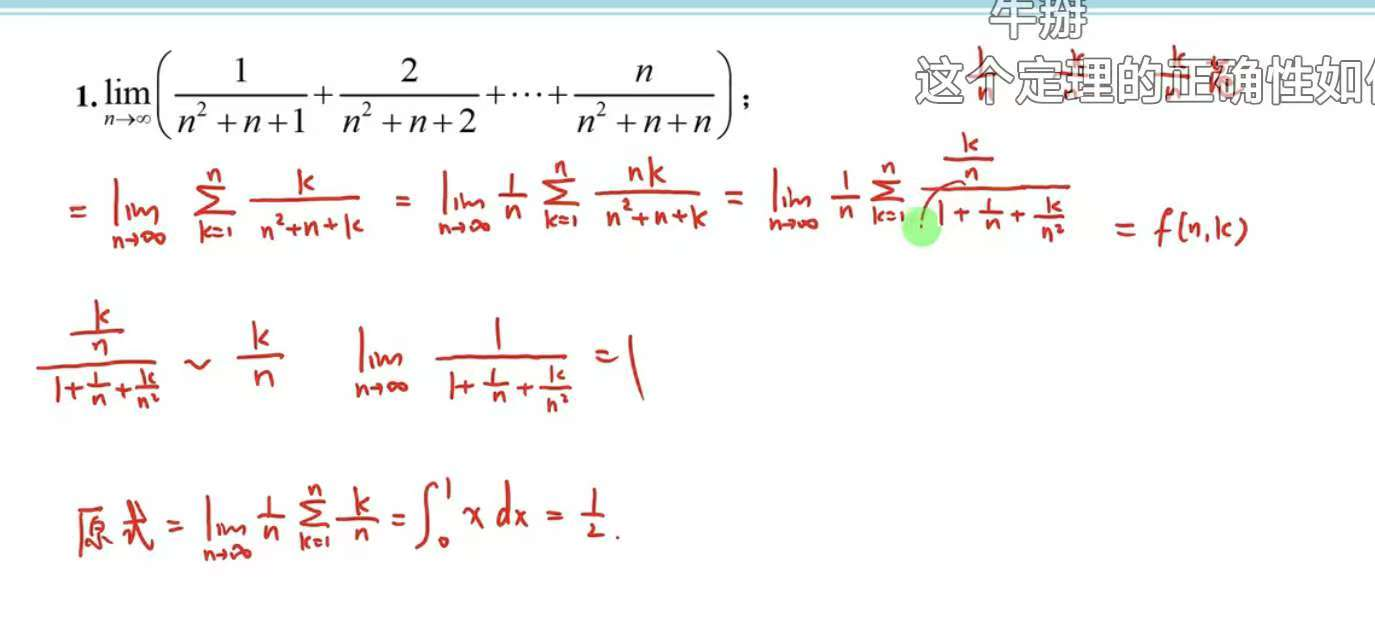 牛掰
这个定理的正确性如
1. lim_{n→∞} ( 1/(n²+n+1) + 2/(n²+n+2) + ⋯ + n/(n²+n+n) ) ;
= lim_{n→∞} ∑_{k=1}^{n} k/(n²+n+k) = lim_{n→∞} 1/n ∑_{k=1}^{n} nk/(n²+n+k) = lim_{n→∞} 1/n ∑_{k=1}^{n} (k/n)/(1+1/n+k/n²) = f(n,k)
(k/n)/(1+1/n+k/n²) ~ k/n lim_{n→∞} 1/(1+1/n+k/n²) = 1
原式 = lim_{n→∞} 1/n ∑_{k=1}^{n} k/n = ∫₀¹ x dx = 1/2.